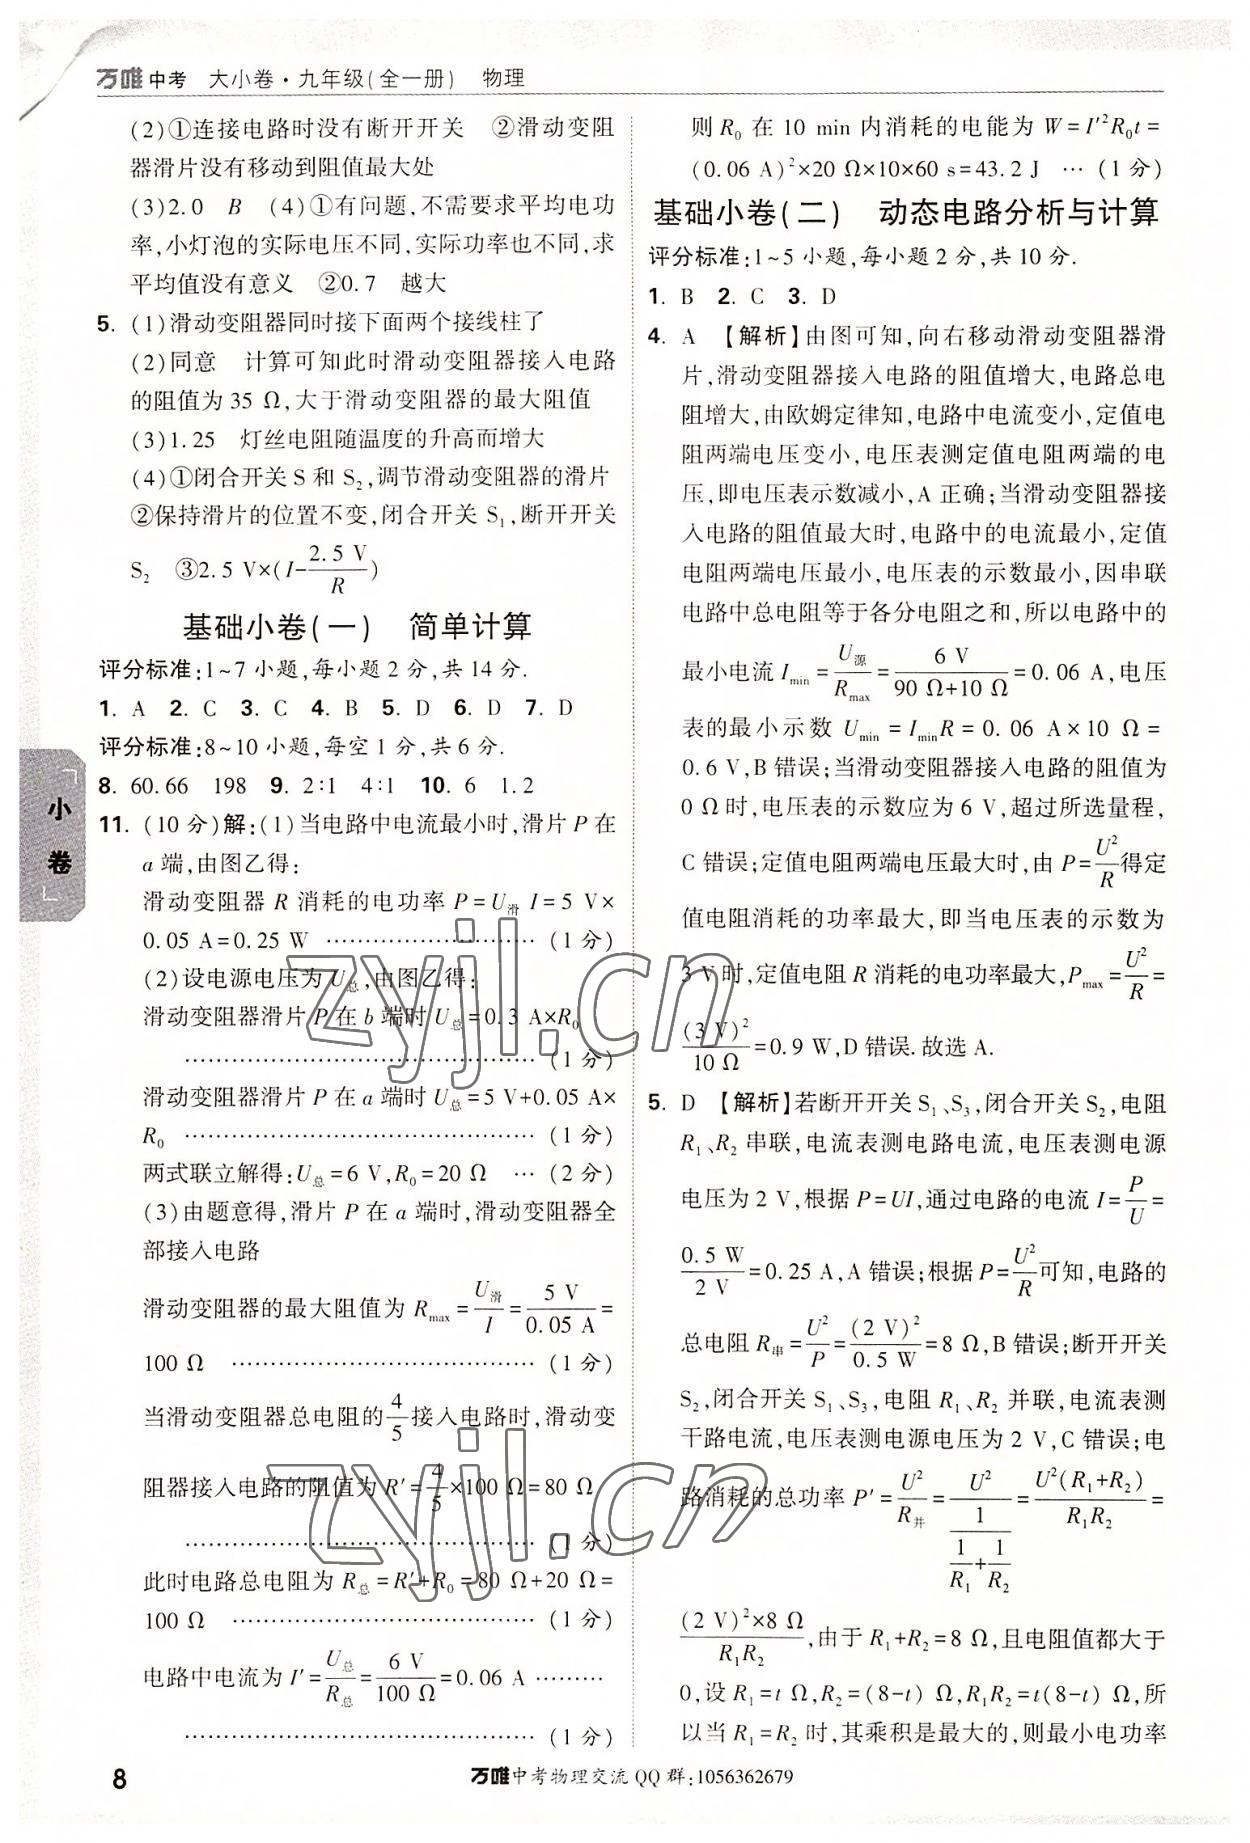 万唯中考 大小卷·九年级(全一册) 物理
(2)①连接电路时没有断开开关 ②滑动变阻
器滑片没有移动到阻值最大处
(3)2.0 B (4)①有问题,不需要求平均电功
率,小灯泡的实际电压不同,实际功率也不同,求
平均值没有意义 ②0.7 越大
5. (1)滑动变阻器同时接下面两个接线柱了
(2)同意 计算可知此时滑动变阻器接入电路
的阻值为 35 Ω,大于滑动变阻器的最大阻值
(3)1.25 灯丝电阻随温度的升高而增大
(4)①闭合开关 S 和 S₂,调节滑动变阻器的滑片
②保持滑片的位置不变,闭合开关 S₁,断开开关
S₂ ③2.5 V×(I-2.5 V/R)
基础小卷(一) 简单计算
评分标准:1~7 小题,每小题 2 分,共 14 分.
1. A 2. C 3. C 4. B 5. D 6. D 7. D
评分标准:8~10 小题,每空 1 分,共 6 分.
8. 60.66 198 9. 2:1 4:1 10. 6 1.2
11. (10 分)解:(1)当电路中电流最小时,滑片 P 在
a 端,由图乙得:
滑动变阻器 R 消耗的电功率 P=U滑 I=5 V×
0.05 A=0.25 W ………………………… (1 分)
(2)设电源电压为 U总,由图乙得:
滑动变阻器滑片 P 在 b 端时 U总=0.3 A×R₀
………………………… (1 分)
滑动变阻器滑片 P 在 a 端时 U总=5 V+0.05 A×
R₀ ………………………… (1 分)
两式联立解得:U总=6 V,R₀=20 Ω … (2 分)
(3)由题意得,滑片 P 在 a 端时,滑动变阻器全
部接入电路
滑动变阻器的最大阻值为 Rmax=U滑/I=5 V/0.05 A=
100 Ω ………………………… (1 分)
当滑动变阻器总电阻的4/5接入电路时,滑动变
阻器接入电路的阻值为 R′=4/5×100 Ω=80 Ω
………………………… (1 分)
此时电路总电阻为 R总=R′+R₀=80 Ω+20 Ω=
100 Ω ………………………… (1 分)
电路中电流为 I′=U总/R总=6 V/100 Ω=0.06 A ………
………………………… (1 分)
则 R₀ 在 10 min 内消耗的电能为 W=I′²R₀t=
(0.06 A)²×20 Ω×10×60 s=43.2 J … (1 分)
基础小卷(二) 动态电路分析与计算
评分标准:1~5 小题,每小题 2 分,共 10 分.
1. B 2. C 3. D
4. A 【解析】由图可知,向右移动滑动变阻器滑
片,滑动变阻器接入电路的阻值增大,电路总电
阻增大,由欧姆定律知,电路中电流变小,定值电
阻两端电压变小,电压表测定值电阻两端的电
压,即电压表示数减小,A 正确;当滑动变阻器接
入电路的阻值最大时,电路中的电流最小,定值
电阻两端电压最小,电压表的示数最小,因串联
电路中总电阻等于各分电阻之和,所以电路中的
最小电流 Imin=U源/Rmax=6 V/(90 Ω+10 Ω)=0.06 A,电压
表的最小示数 Umin=IminR=0.06 A×10 Ω=
0.6 V,B 错误;当滑动变阻器接入电路的阻值为
0 Ω 时,电压表的示数应为 6 V,超过所选量程,
C 错误;定值电阻两端电压最大时,由 P=U²/R得定
值电阻消耗的功率最大,即当电压表的示数为
3 V 时,定值电阻 R 消耗的电功率最大,Pmax=U²/R=
(3 V)²/10 Ω=0.9 W,D 错误.故选 A.
5. D 【解析】若断开开关 S₁、S₃,闭合开关 S₂,电阻
R₁、R₂ 串联,电流表测电路电流,电压表测电源
电压为 2 V,根据 P=UI,通过电路的电流 I=P/U=
0.5 W/2 V=0.25 A,A 错误;根据 P=U²/R可知,电路的
总电阻 R串=U²/P=(2 V)²/0.5 W=8 Ω,B 错误;断开开关
S₂,闭合开关 S₁、S₃,电阻 R₁、R₂ 并联,电流表测
干路电流,电压表测电源电压为 2 V,C 错误;电
路消耗的总功率 P′=U²/R并=U²/(1/(1/R₁+1/R₂))=U²(R₁+R₂)/R₁R₂=
(2 V)²×8 Ω/R₁R₂,由于 R₁+R₂=8 Ω,且电阻值都大于
0,设 R₁=t Ω,R₂=(8-t) Ω,R₁R₂=t(8-t) Ω,所
以当 R₁=R₂ 时,其乘积是最大的,则最小电功率
小卷
zyjl.cn
zyjl.cn
8
万唯中考物理交流 QQ 群:1056362679